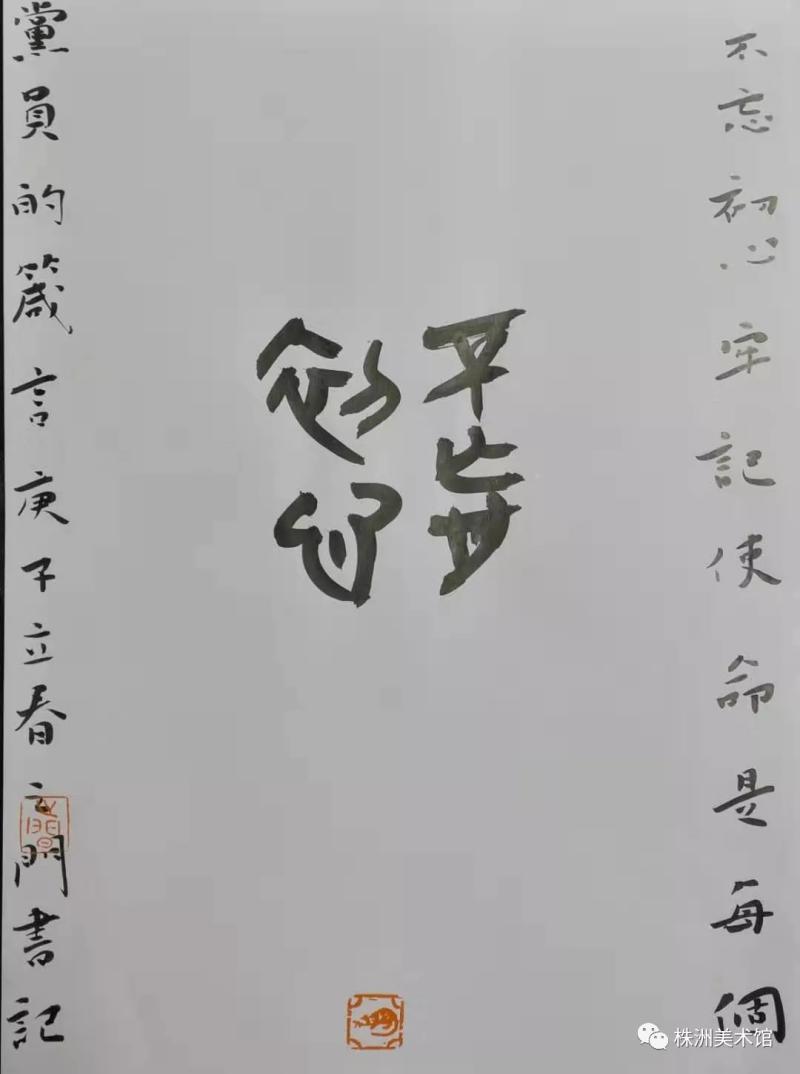 不忘
初心
不忘初心牢記使命是每個
黨員的箴言庚子立春云門書記
株洲美术馆